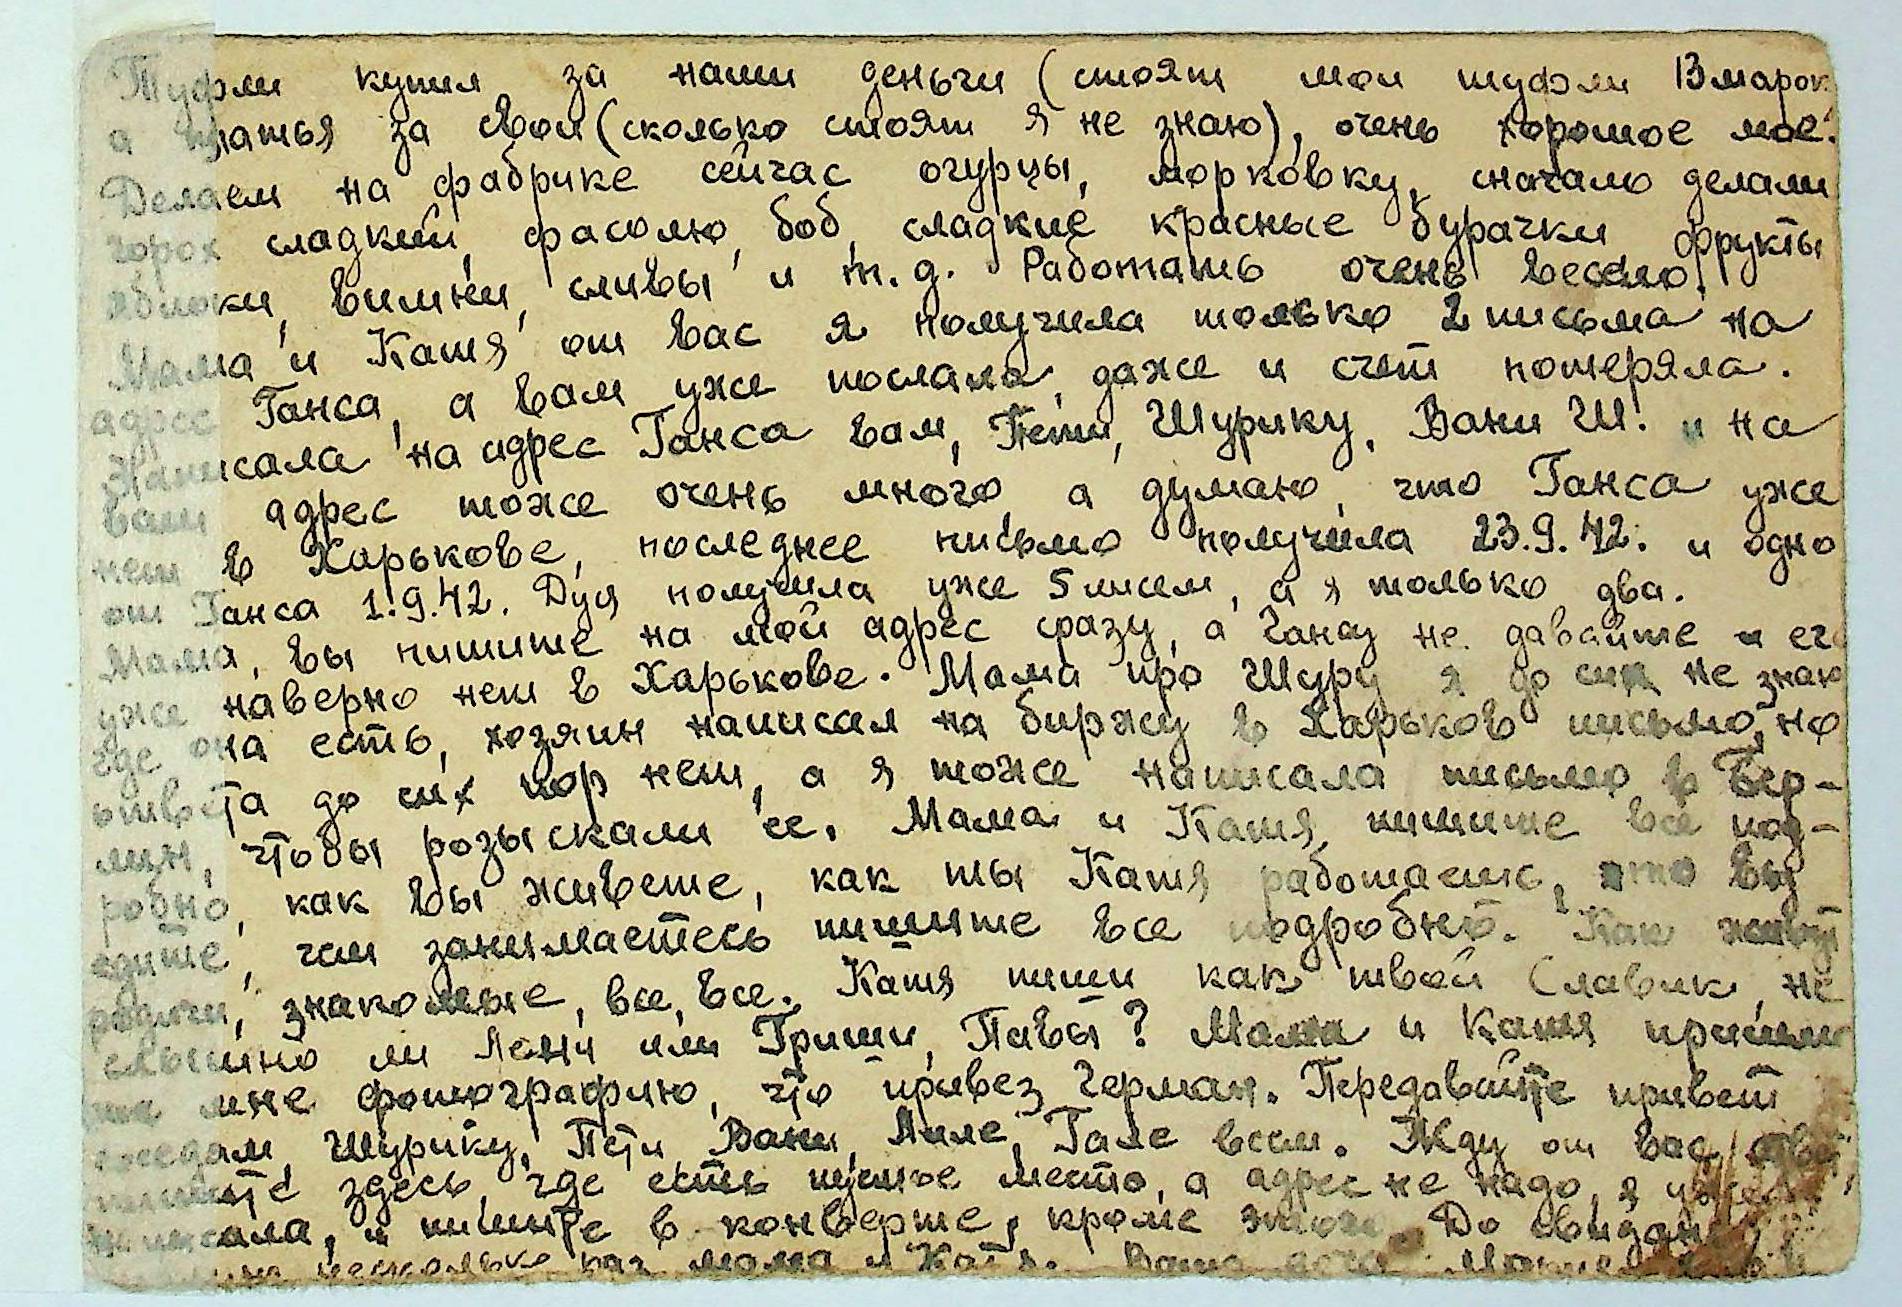 Туфли купил за наши деньги (стоят мои туфли 13 марок
а платья за свои (сколько стоят я не знаю), очень хорошое мое.
Делаем на фабрике сейчас огурцы, морковку, сначало делали
горох сладкий, фасолю, боб, сладкие красные бурачки фрукты
яблоки, вишни, сливы и т.д. Работать очень весело.
Мама и Катя от вас я получила только 2 письма на
адрес Ганса, а вам уже послала, даже и счет потеряла.
Написала на адрес Ганса вам, Пети, Шурику, Вани Ш. и на
ваш адрес тоже очень много, а думаю, что Ганса уже
нет в Харькове, последнее письмо получила 23.9.42. и одно
от Ганса 1.9.42. Дуя получила уже 5 писем, а я только два.
Мама, вы пишите на мой адрес сразу, а Гансу не давайте и его
уже наверно нет в Харькове. Мама про Шуру я до сих не знаю
где она есть, хозяин написал на биржу в Харьков письмо, но
ответа до сих пор нет, а я тоже написала письмо в Бер-
лин, чтобы розыскали ее. Мама и Катя, пишите все под-
робно, как вы живете, как ты Катя работаешь, что вы
едите, чем занимаетесь пишите все подробно. Как живут
родичи, знакомые, все, все. Катя пиши как твой Славик, не
слышно ли Лени или Гриши, Павы? Мама и Катя пришли
те мне фотографию, что привез Герман. Передавайте привет
соседам, Шурику, Пети Вани, Лиле, Гале всем. Жду от вас
пишите здесь, где есть пустое место, а адрес не надо, я уже
написала, и пишите в конверте, кроме этого. До свидания
несколько раз мама и Катя. Ваша